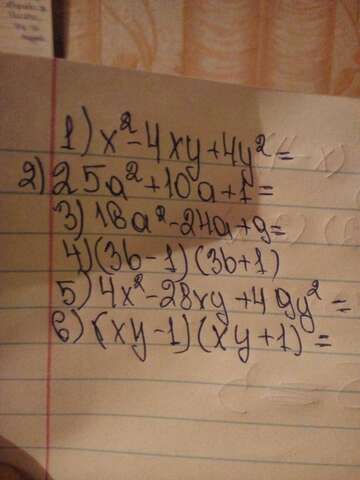 1) x²-4xy+4y²=
2) 25a²+10a+1=
3) 18a²-24a+9=
4) (3b-1)(3b+1)
5) 4x²-28xy+49y²=
6) (xy-1)(xy+1)=